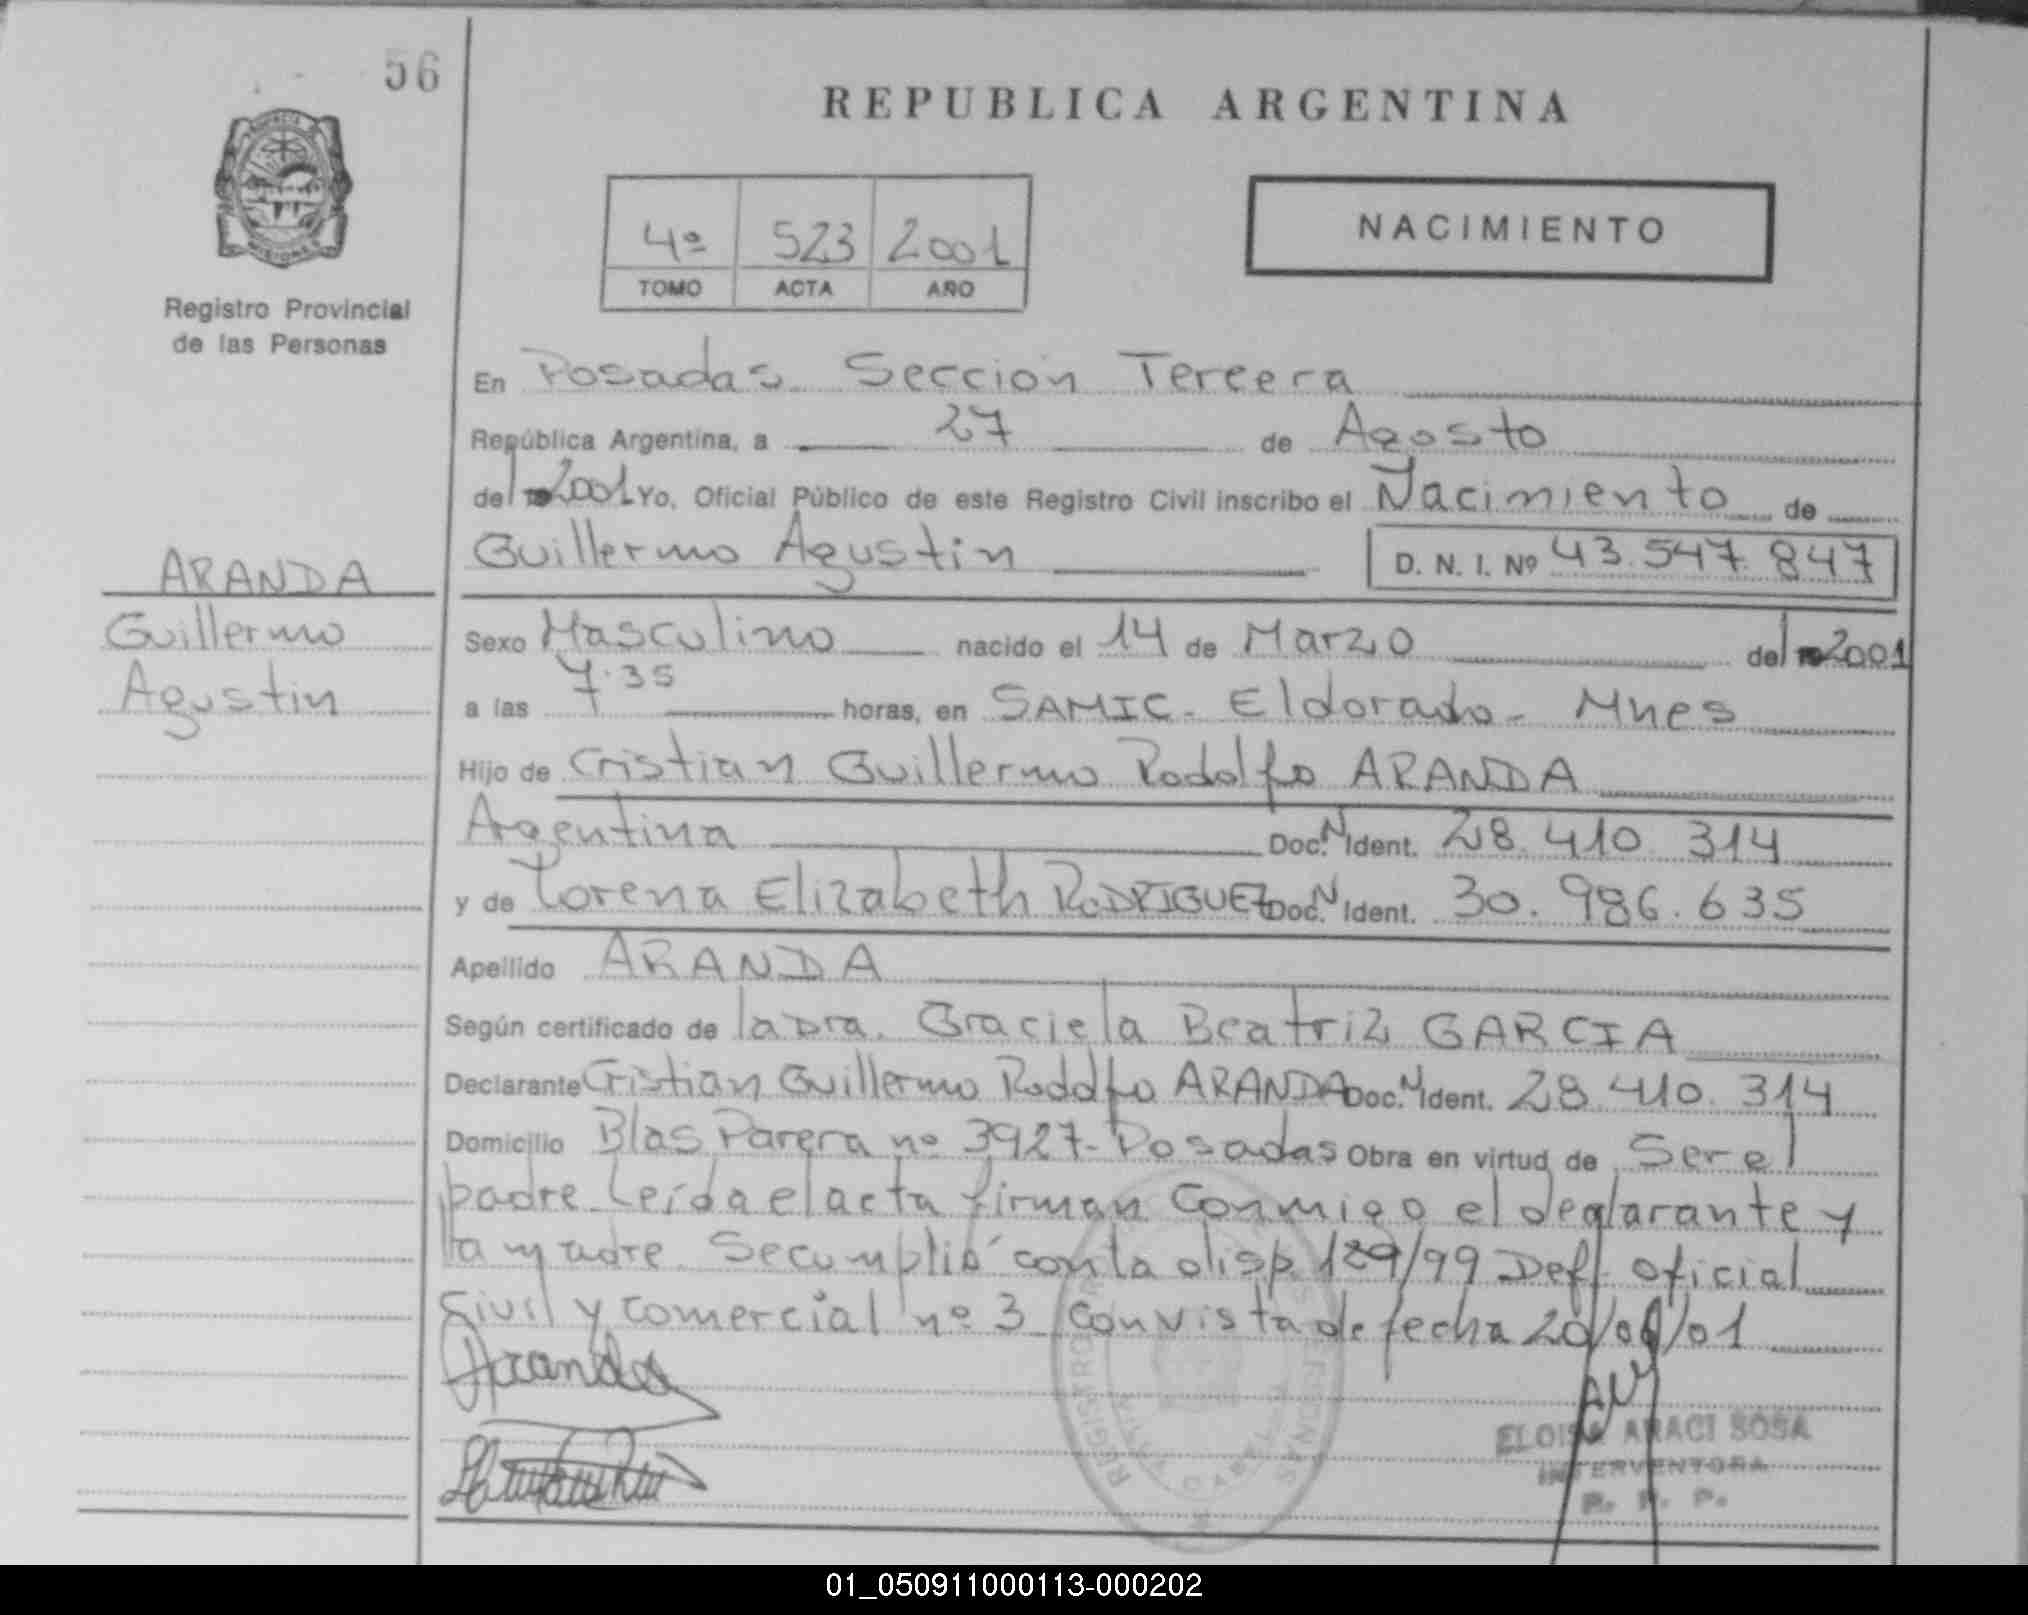 56
REPUBLICA ARGENTINA
NACIMIENTO
4º 523 2001
TOMO ACTA AÑO
Registro Provincial
de las Personas
En Posadas Seccion Tercera
República Argentina, a 27 de Agosto
del 2001 Yo, Oficial Público de este Registro Civil inscribo el Nacimiento de
Guillermo Agustin D. N. I. Nº 43.547.847
ARANDA
Guillermo
Agustin
Sexo Masculino nacido el 14 de Marzo del 2001
a las 7.35 horas, en SAMIC - Eldorado - Mnes
Hijo de Cristian Guillermo Rodolfo ARANDA
Argentina Doc. N Ident. 28.410.314
y de Lorena Elizabeth RODRIGUEZ Doc. N Ident. 30.986.635
Apellido ARANDA
Según certificado de la Dra. Graciela Beatriz GARCIA
Declarante Cristian Guillermo Rodolfo ARANDA Doc. N Ident. 28.410.314
Domicilio Blas Parera nº 3927 - Posadas Obra en virtud de Ser el
padre. Leída el acta firman Conmigo el declarante y
la madre. Se cumplió con la disp. 129/99 Def. Oficial
Civil y comercial nº 3 Con vista de fecha 20/06/01
Aranda
ELOISA ARACI SOSA
INTERVENTORA
01_050911000113-000202